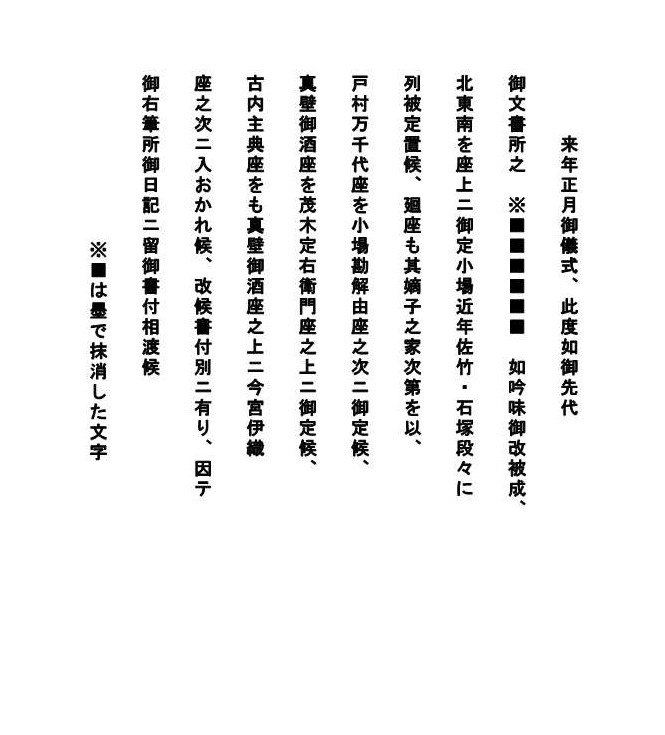 来年正月御儀式、此度如御先代
御文書所之　※■■■■■■　如吟味御改被成、
北東南を座上ニ御定小場近年佐竹・石塚段々に
列被定置候、廻座も其嫡子之家次第を以、
戸村万千代座を小場勘解由座之次ニ御定候、
真壁御酒座を茂木定右衛門座之上ニ御定候、
古内主典座をも真壁御酒座之上ニ今宮伊織
座之次ニ入おかれ候、改候書付別ニ有り、因テ
御右筆所御日記ニ留御書付相渡候
※■は墨で抹消した文字